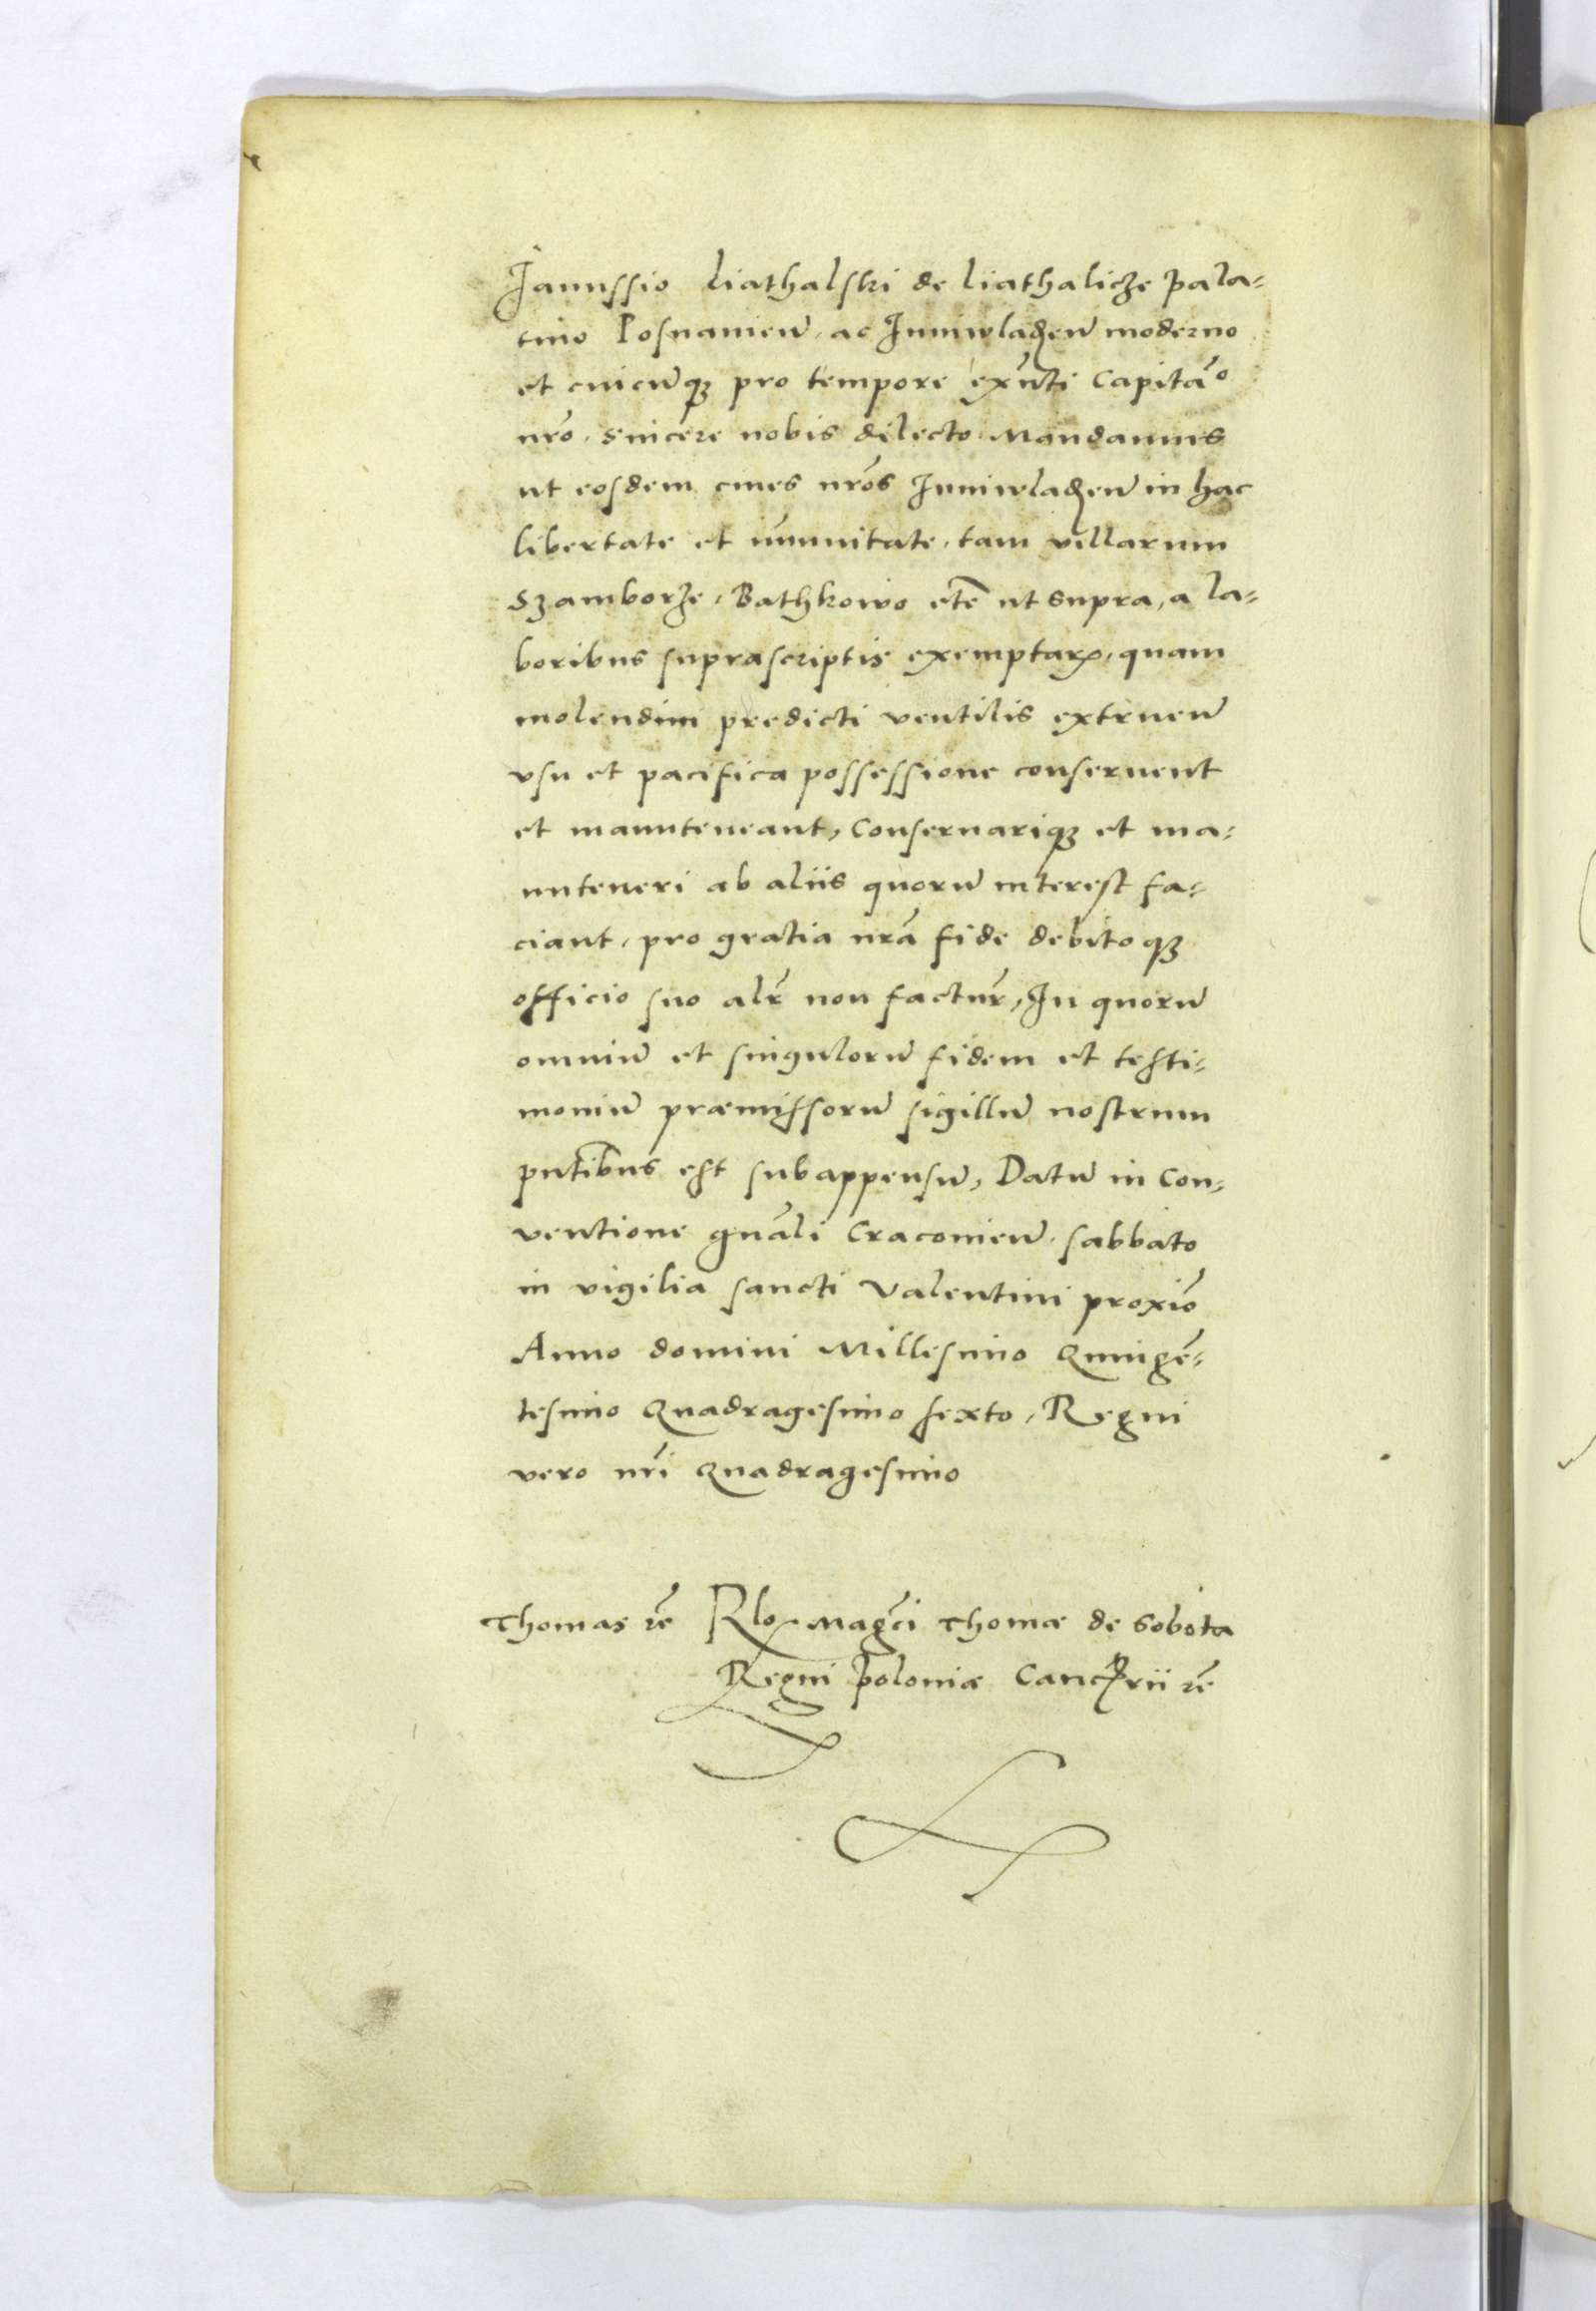 Janussio Liathalski de Liathalicze Pala-
tino Posnanien̄. ac Juniwladien̄ moderno
et cuicūq3 pro tempore exn̄ti Capitāo
nr̄o. Sincere nobis dilecto. Mandamus
ut eosdem ciues nr̄os Juniwladien̄ in hac
libertate et im̄unitate. tam villarum
Szamborze. Bathkowo etc̄ ut supra, a la-
boribus suprascriptis exemptaꝝ. quam
molendini predicti ventilis extruen̄
vsu et pacifica possessione conseruent
et manuteneant, Conseruariq3 et ma-
nuteneri ab aliis quorū interest fa-
ciant. pro gratia nr̄a fide debitoq3
officio suo alr̄ non factur̄, In quorū
omniū et singulorū fidem et testi-
moniū præmissorū sigillū nostrum
pn̄tibus est subappensū, Datū in Con-
ventione gn̄ali Cracouien̄. sabbato
in vigilia sancti Valentini proxīo
Anno domini Millesimo Quingē-
tesimo Quadragesimo sexto, Regni
vero nr̄i Quadragesimo
Thomas rē Rlo Magc̄i Thomæ de Sobota
Regni Poloniæ Cancꝛrii rē